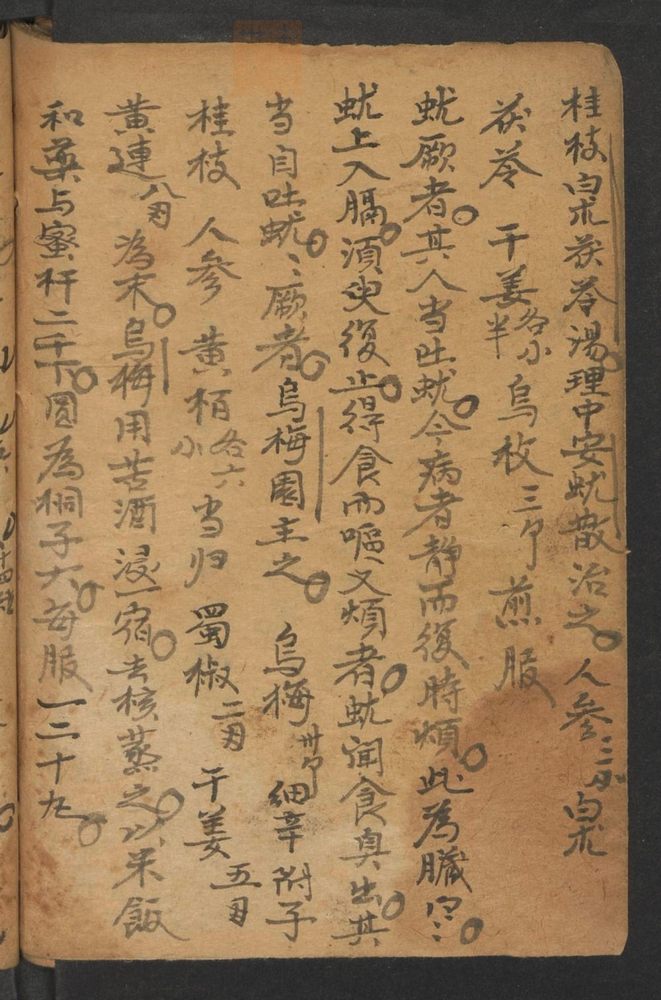 桂枝白朮茯苓湯理中安蚘散治之人参三小白朮
茯苓 干姜各小半 烏枚三个 煎服
蚘厥者其人当吐蚘今病者静而復時煩此為臓
蚘上入膈湏臾復止得食而嘔又煩者蚘闻食臭出其
当自吐蚘〻厥者烏梅圓主之 烏梅卅个 細辛附子
桂枝 人参 黄栢各六小 当归 蜀椒二 干姜五
黄連八 為末烏梅用苦酒浸一宿去核蒸之以米飯
和藥与蜜杵二千下圓為桐子大每服一二十丸